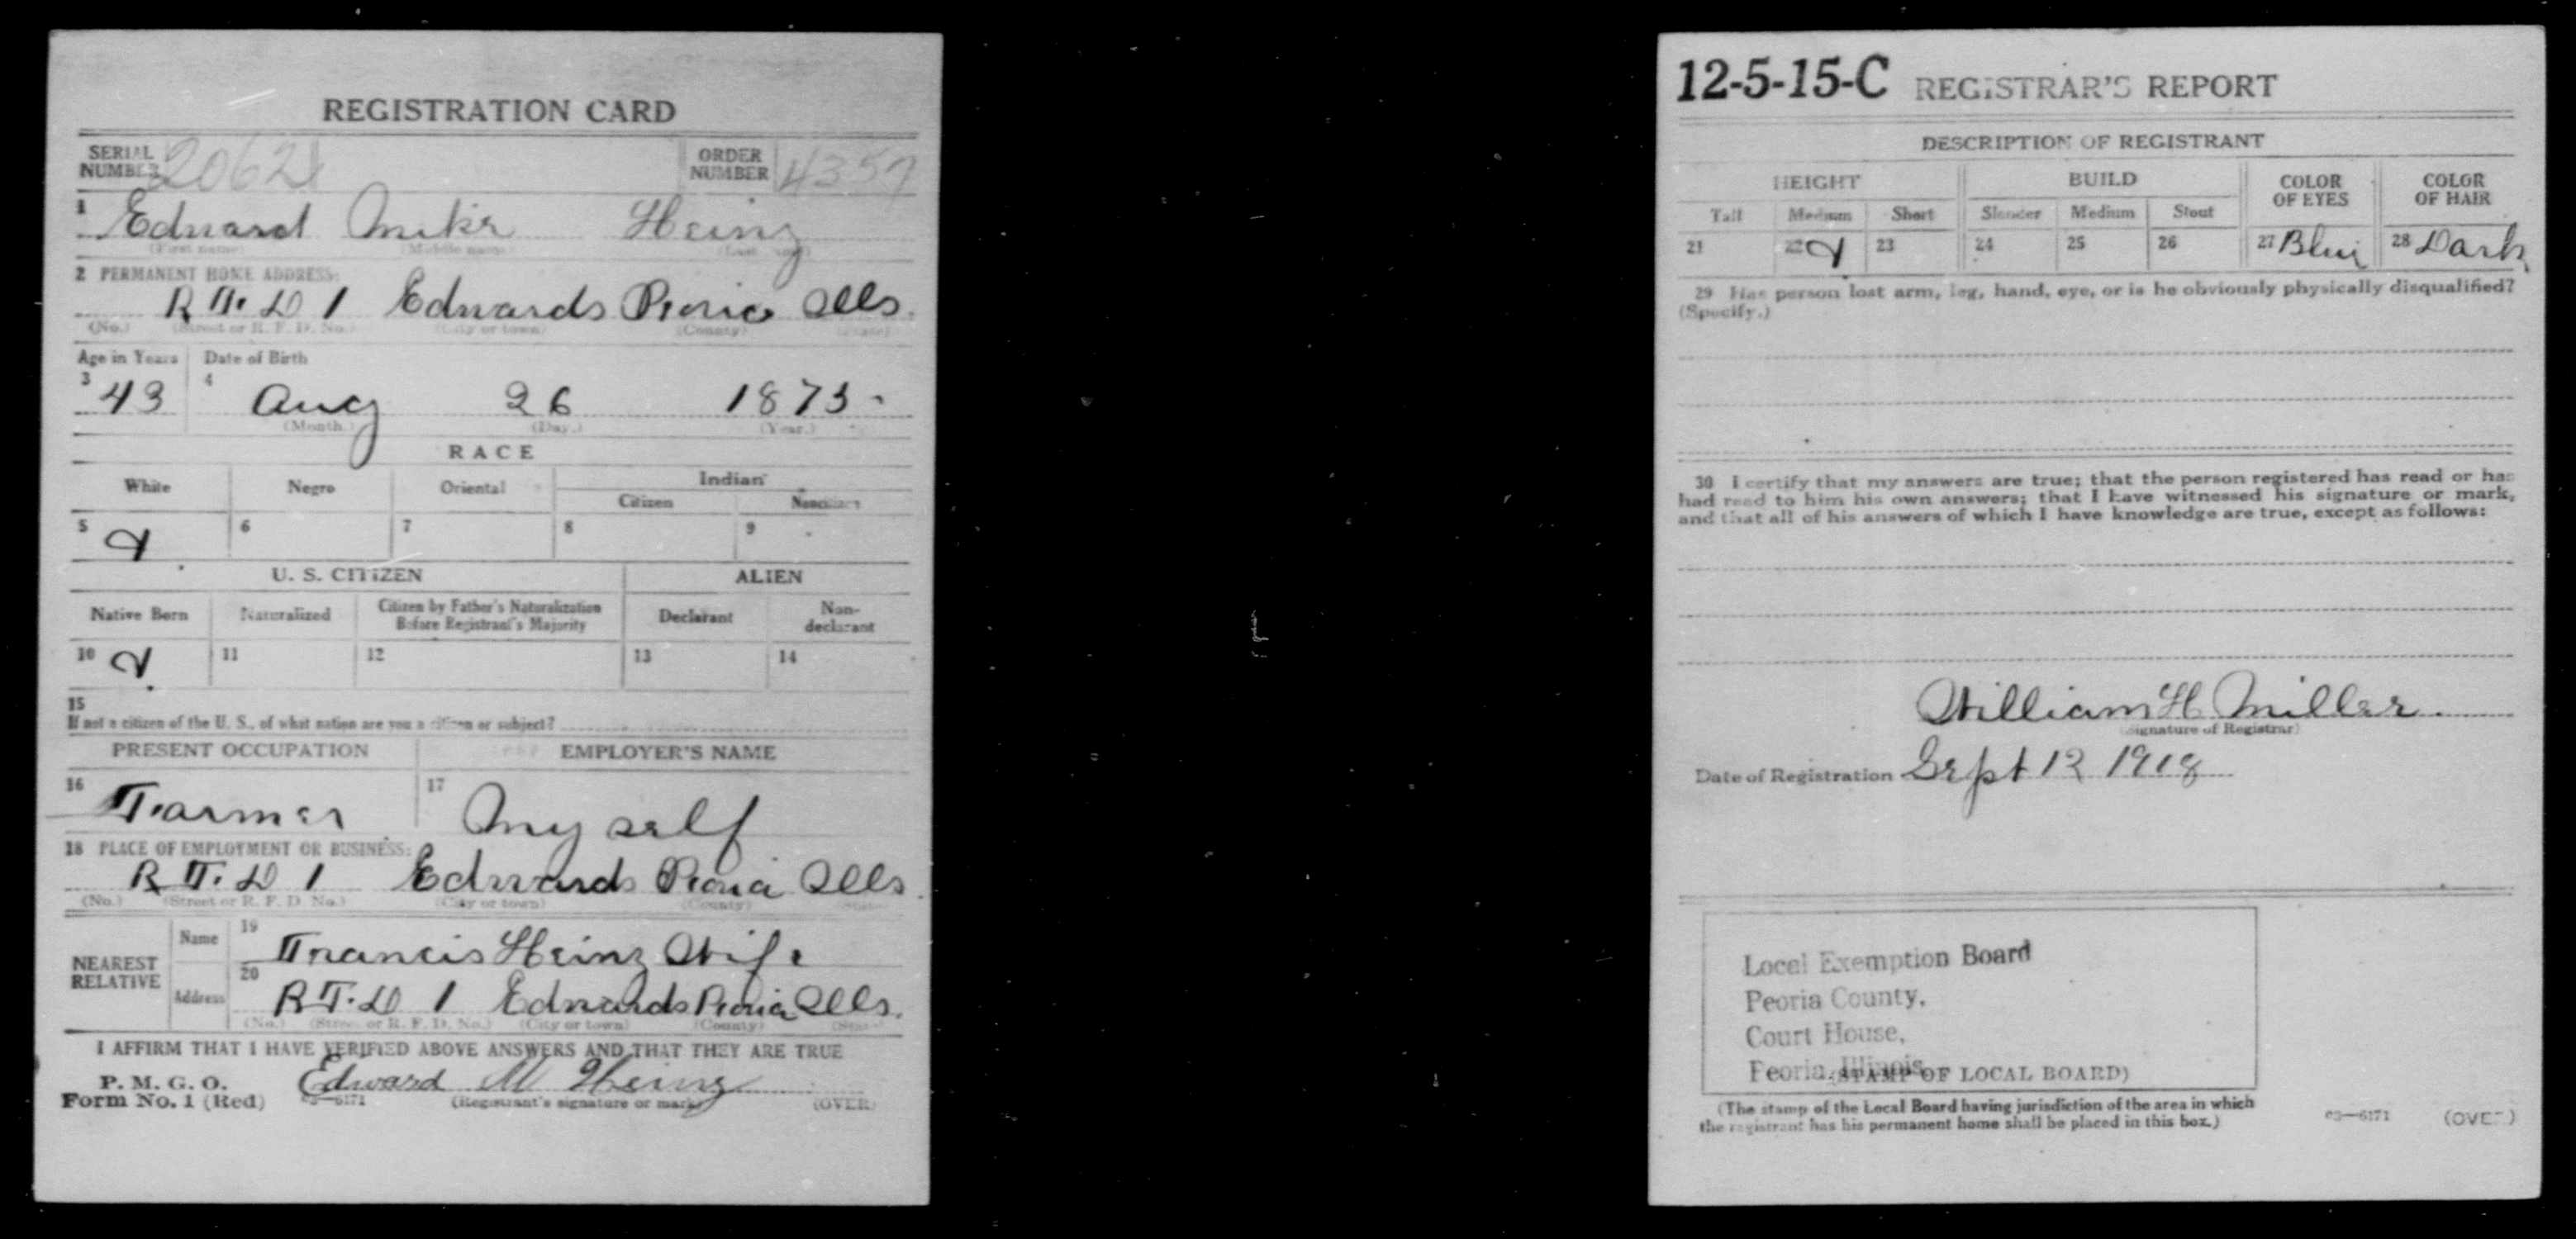 REGISTRATION CARD
SERIAL NUMBER 2062
ORDER NUMBER 4357
1 Edward Mike Heinz
(First name) (Middle name) (Last name)
2 PERMANENT HOME ADDRESS:
R F. D 1 Edwards Peoria Ills.
(No.) (Street or R. F. D. No.) (City or town) (County) (State)
Age in Years Date of Birth
3 43 4 Aug 26 1873
(Month.) (Day.) (Year.)
RACE
White Negro Oriental Indian
Citizen Noncitizen
5 6 7 8 9
U. S. CITIZEN ALIEN
Native Born Naturalized Citizen by Father's Naturalization Before Registrant's Majority Declarant Non-declarant
10 11 12 13 14
15
If not a citizen of the U. S., of what nation are you a citizen or subject?
PRESENT OCCUPATION EMPLOYER'S NAME
16 Farmer 17 My self
18 PLACE OF EMPLOYMENT OR BUSINESS:
R F. D 1 Edwards Peoria Ills
(No.) (Street or R. F. D. No.) (City or town) (County) (State)
NEAREST RELATIVE
Name 19 Francis Heinz Wife
Address 20 R F. D 1 Edwards Peoria Ills.
(No.) (Street or R. F. D. No.) (City or town) (County) (State)
I AFFIRM THAT I HAVE VERIFIED ABOVE ANSWERS AND THAT THEY ARE TRUE
P. M. G. O.
Form No. 1 (Red) Edward M Heinz
03—6171 (Registrant's signature or mark) (OVER)
12-5-15-C REGISTRAR'S REPORT
DESCRIPTION OF REGISTRANT
HEIGHT BUILD COLOR OF EYES COLOR OF HAIR
Tall Medium Short Slender Medium Stout
21 22 23 24 25 26 27 Blue 28 Dark
29 Has person lost arm, leg, hand, eye, or is he obviously physically disqualified?
(Specify.)
30 I certify that my answers are true; that the person registered has read or has
had read to him his own answers; that I have witnessed his signature or mark,
and that all of his answers of which I have knowledge are true, except as follows:
William H Miller
(Signature of Registrar)
Date of Registration Sept 12 1918
Local Exemption Board
Peoria County,
Court House,
Peoria, Illinois
(STAMP OF LOCAL BOARD)
(The stamp of the Local Board having jurisdiction of the area in which
the registrant has his permanent home shall be placed in this box.)
03—6171 (OVER)